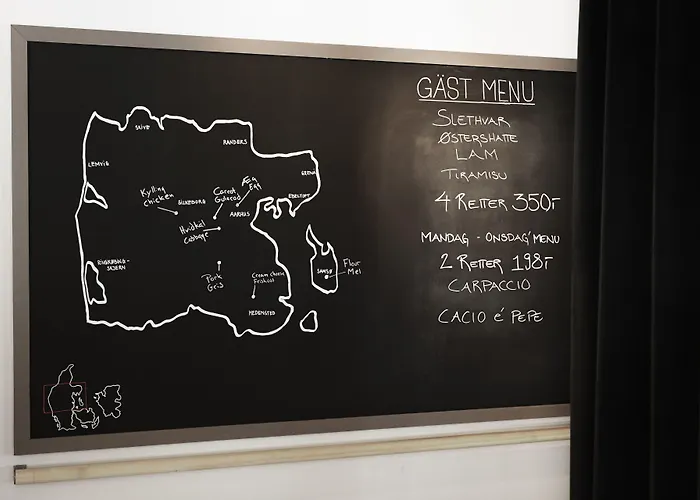 SKIVE
RANDERS
LEMVIG
GRENÅ
Kylling
chicken
SILKEBORG
Carrot
Gulerod
Æg
Egg
EBELTOFT
AARHUS
Hvidkål
Cabbage
RINGKØBING-
SKJERN
Pork
Gris
Cream cheese
Friskost
HEDENSTED
SAMSØ
Flour
Mel
GÄST MENU
SLETHVAR
ØSTERSHATTE
LAM
TIRAMISU
4 RETTER 350,-
MANDAG - ONSDAG MENU
2 RETTER 198,-
CARPACCIO
CACIO é PEPE